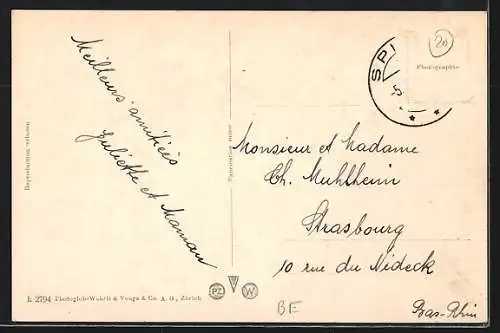 Meilleurs amitiées
Juliette et Maman
Reproduction verboten
k 2794 Photoglob-Wehrli & Vouga & Co. A. G., Zürich
PZ
W
BE
SPI
Photographie
20
Monsieur et Madame
Ch. Muhlheim
Strasbourg
10 rue du Nideck
Bas-Rhin